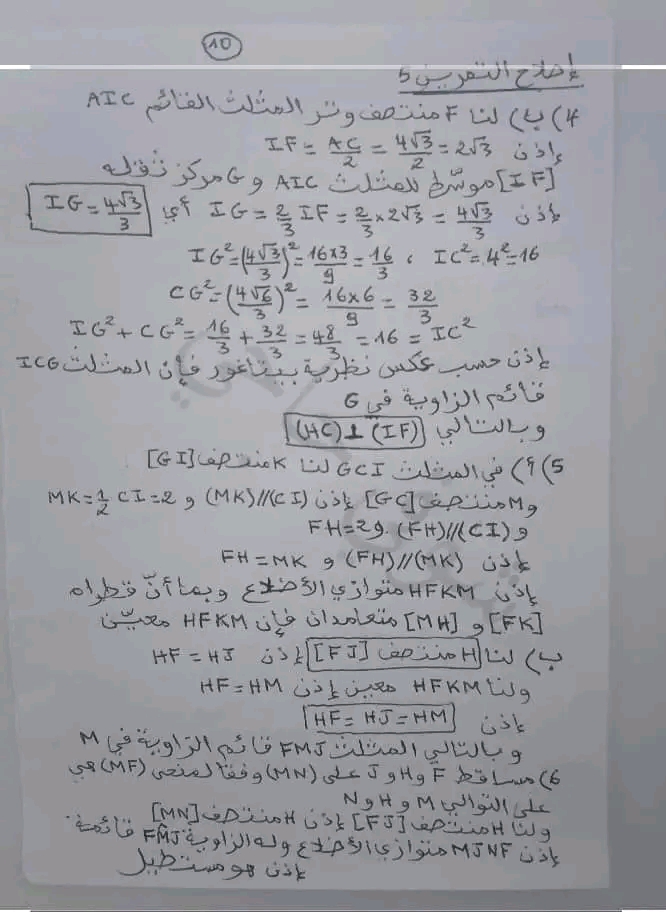 10
إصلاح التمرين 5
4) ب) لنا F منتصف وتر المثلث القائم AIC
إذن IF = AC/2 = 4√3/2 = 2√3
[IF] موسّط للمثلث AIC و G مركز ثقله
إذن IG = 2/3 IF = 2/3 × 2√3 = 4√3/3 أي IG = 4√3/3
IG² = (4√3/3)² = 16×3/9 = 16/3 ، IC² = 4² = 16
CG² = (4√6/3)² = 16×6/9 = 32/3
IG² + CG² = 16/3 + 32/3 = 48/3 = 16 = IC²
إذن حسب عكس نظرية بيتاغور فإن المثلث ICG
قائم الزاوية في G
وبالتالي (HC) ⊥ (IF)
5) أ) في المثلث GCI لنا K منتصف [GI]
و M منتصف [GC] إذن (MK)//(CI) و MK = 1/2 CI = 2
و (FH)//(CI) و FH = 2
إذن (FH)//(MK) و FH = MK
إذن HFKM متوازي الأضلاع وبما أنّ قطراه
[FK] و [MH] متعامدان فإن HFKM معيّن
ب) لنا H منتصف [FJ] إذن HF = HJ
ولنا HFKM معين إذن HF = HM
إذن HF = HJ = HM
وبالتالي المثلث FMJ قائم الزاوية في M
6) مساقط F و H و J على (MN) وفقا لمنحى (MF) هي
على التوالي M و H و N
ولنا H منتصف [FJ] إذن H منتصف [MN]
إذن MJNF متوازي الأضلاع وله الزاوية FM̂J قائمة
إذن هو مستطيل